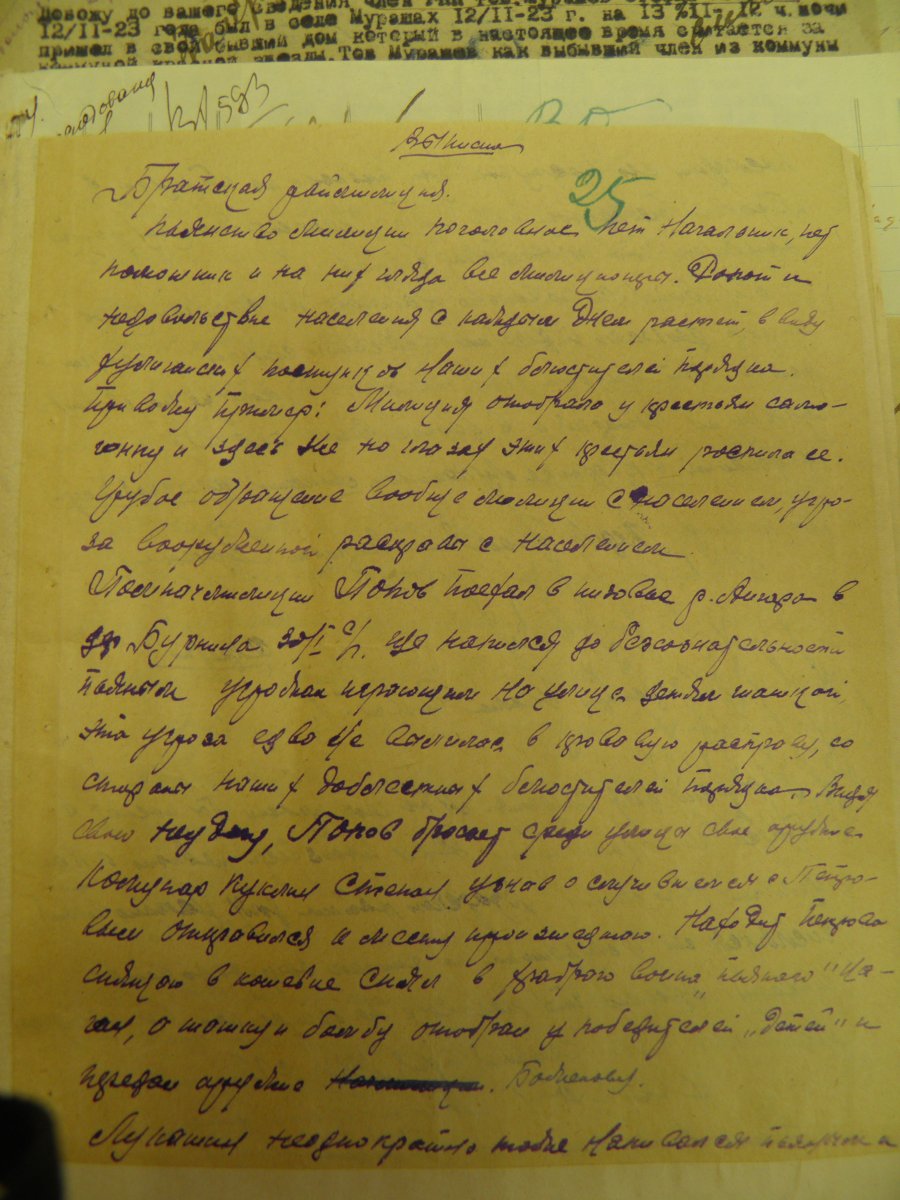 довожу до вашего сведения член
12/II-23 года был в селе Мурашах 12/II-23 г. на 13/II- 12 ч. ночи
пришел в свой бывший дом который в настоящее время считается за
коммуной красной звезды. Тов Мурашев как выбывший член из коммуны
593
Выписка
25
Братская раймилиция.
пьянство милиции поголовное пьет Начальник, пьет
помошник и на них глядя все милиционеры. Ропот и
недовольствие населения с каждым Днем растет, в виду
хулиганских поступков Наших блюстителей порядка.
Привожу Пример: Милиция отобрала у крестьян само-
гонку и здесь же на глазах этих крестьян роспила ее.
Грубое обращение вообще милиции с населением, угро-
за вооруженной расправы с населением
Помначмилиции Попов Поехал в низовье р. Ангара в
др Бурнина 30/I с/г. где напился до безсознательности
пьяным угрожал играющим на улице детям шашкой,
эта угроза едва не вылилась в кровавую расправу, со
стороны наших доблестных блюстителей порядка. Видя
свою неудачу, Попов бросает среди улицы свое оружие.
Куклин Степан узнав о случившемся с Петро-
вым отправился к месту происшедшего. Находит Петрова
спящаго в кошевке снял с храброго воина „пьяного" на-
ган, а шашку и бомбу отобрал у победителей „детей" и
передал оружие
Лукашин неоднократно тоже Напивался пьяным и